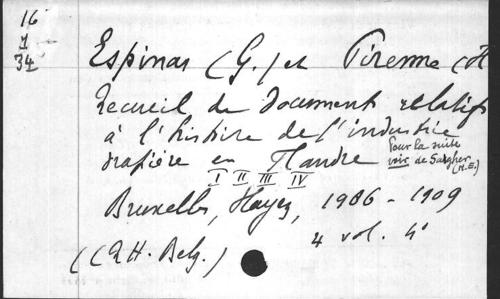 16
1
34
Espinas (G.) et Pirenne (H
Recueil de document relatifs
à l'histoire de l'industrie
drapière en Flandre
Pour la suite
voir de Sagher
(H.E.)
I II III IV
Bruxelles, Hayez, 1906-1909
4 vol. 4°
((R H. Belg.)